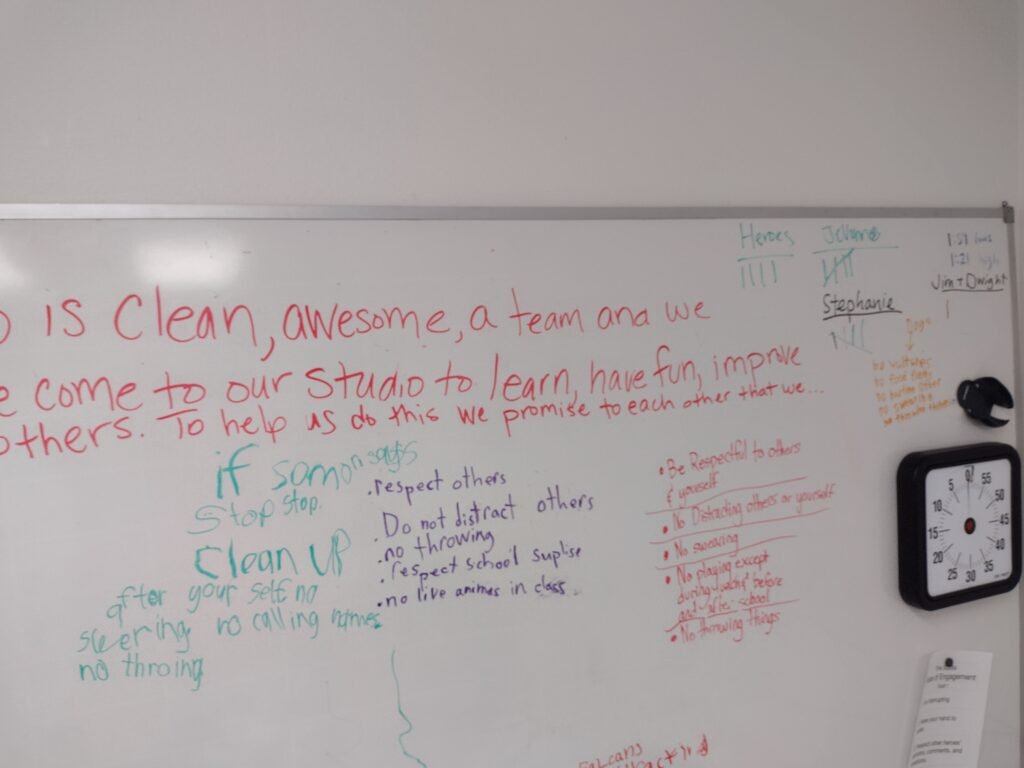 IS Clean, awesome, a team and we
come to our Studio to learn, have fun, improve
others. To help us do this we promise to each other that we...
if somon says
Stop stop.
Clean UP
after your self no
no calling names
no throing
.respect others
Do not distract others
.no throwing
.respect school suplise
.no live animes in class
•Be Respectful to others
& yourself
•No Distracting others or yourself
•No swearing
•No playing except
during lunch & before
and after school
•No throwing things
Heroes
Stephanie
1:51
1:21
Jim + Dwight
Dogs
no swearing
0 55 50 45 40 35 30 25 20 15 10 5
Engagement
Falcons